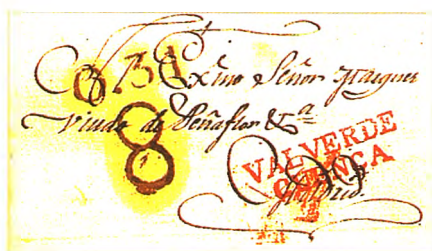 Exmo Señor Marques
Viudo de Peñaflor &a
8
VALVERDE
CUENCA